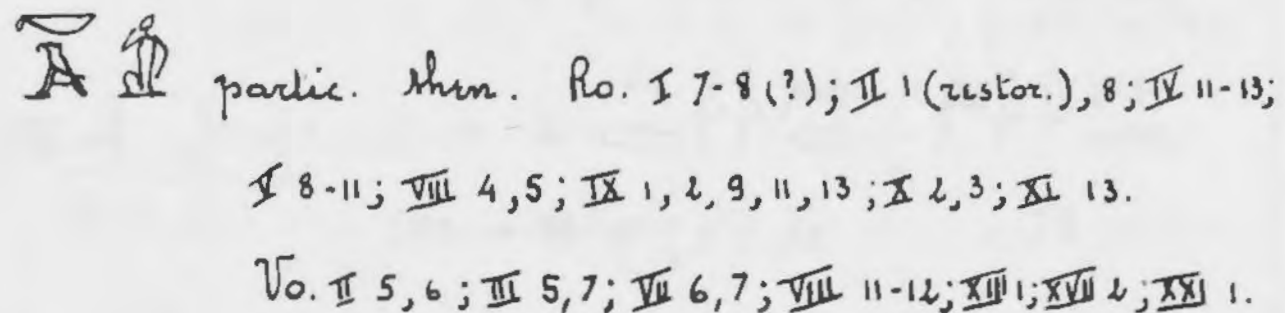 𓎡𓄿𓀁 partic. then. Ro. I 7-8 (?); II 1 (restor.), 8; IV 11-13;
V 8-11; VIII 4,5; IX 1, 2, 9, 11, 13; X 2, 3; XI 13.
Vo. II 5, 6; III 5, 7; VII 6, 7; VIII 11-12; XIII 1; XVII 2; XXI 1.